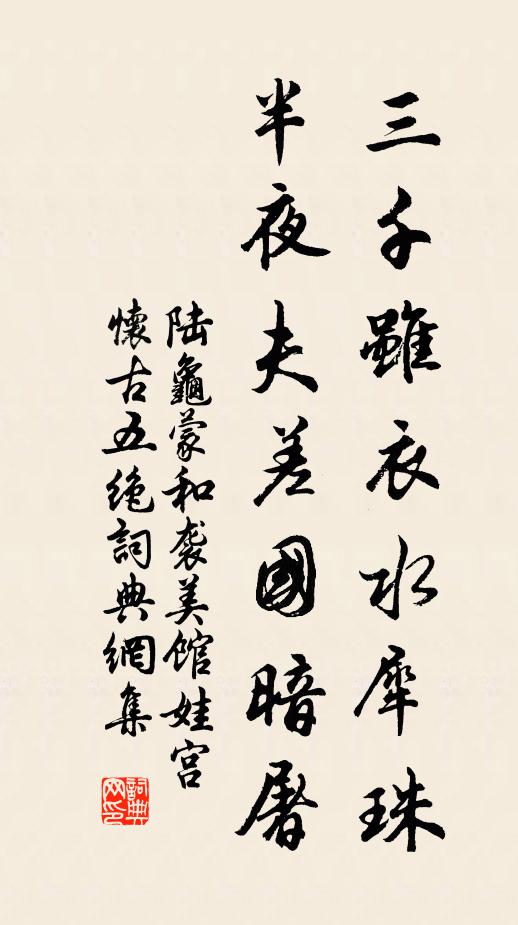 三千雖衣水犀珠
半夜夫差國暗屠
陆龜蒙和袭美馆娃宫
懷古五绝詞典網集
詞典
网印